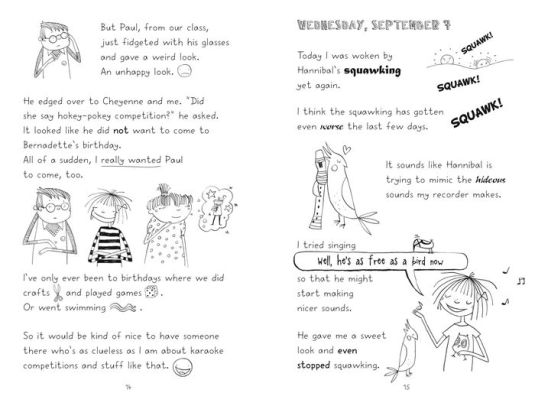 But Paul, from our class,
just fidgeted with his glasses
and gave a weird look.
An unhappy look.
He edged over to Cheyenne and me. "Did
she say hokey-pokey competition?" he asked.
It looked like he did not want to come to
Bernadette's birthday.
All of a sudden, I really wanted Paul
to come, too.
I've only ever been to birthdays where we did
crafts and played games .
Or went swimming .
So it would be kind of nice to have someone
there who's as clueless as I am about karaoke
competitions and stuff like that.
14
WEDNESDAY, SEPTEMBER 7
Today I was woken by
Hannibal's squawking
yet again.
SQUAWK!
SQUAWK!
SQUAWK!
I think the squawking has gotten
even worse the last few days.
It sounds like Hannibal is
trying to mimic the hideous
sounds my recorder makes.
I tried singing
Well, he's as free as a bird now
so that he might
start making
nicer sounds.
He gave me a sweet
look and even
stopped squawking.
15